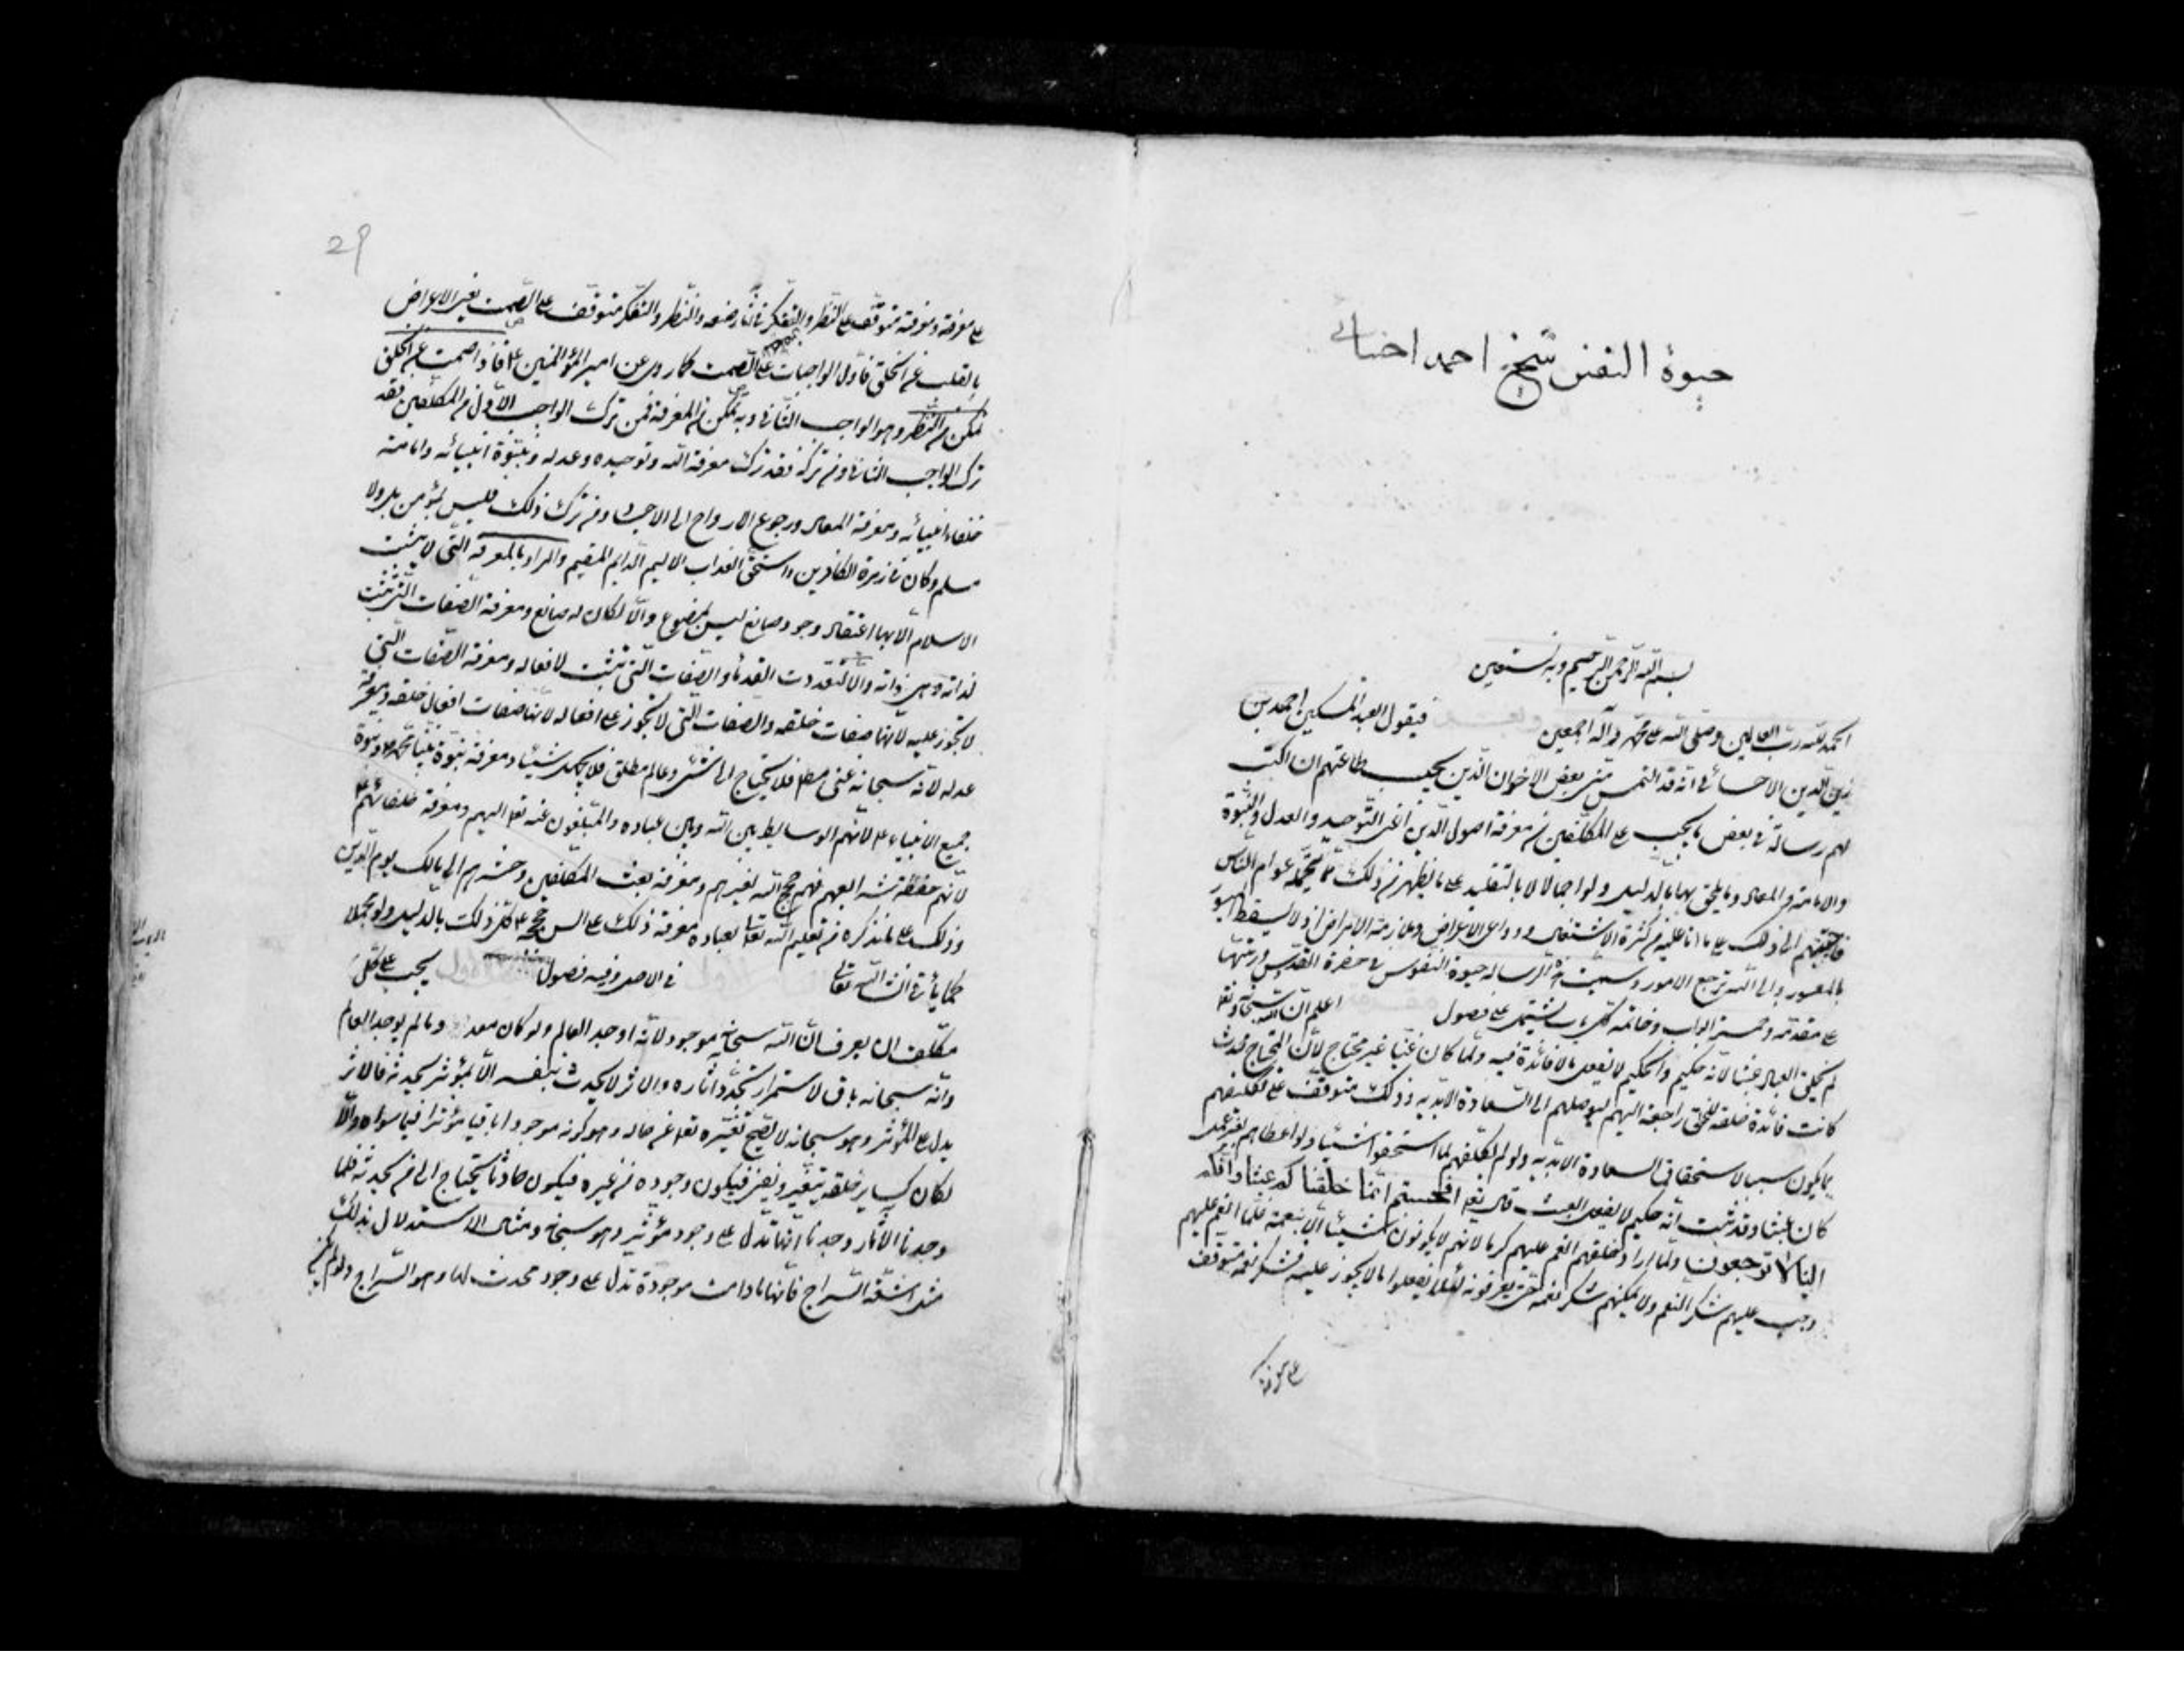 حيوة النفس شيخ احمد احسائى
بسم الله الرحمن الرحيم وبه نستعين
الحمد لله رب العالمين وصلى الله على محمد وآله اجمعين فيقول العبد المسكين احمد بن
زين الدين الاحسائى انه قد التمس منى بعض الاخوان الذين يجب طاعتهم ان اكتب
لهم رسالة فى بعض ما يجب على المكلفين من معرفة اصول الدين اعنى التوحيد والعدل والنبوة
والامامة والمعاد وما يلحق بها بالدليل ولو اجمالا لا بالتقليد على ما يظهر من ذلك مما يحتمله عوام الناس
فاجبتهم الى ذلك على ما انا عليه من كثرة الاشتغال ودواعى الاعراض وملازمة الامراض اذ لا يسقط الميسور
بالمعسور والى الله ترجع الامور وسميت هذه الرسالة حيوة النفوس فى حضرة القدس ورتبتها
على مقدمة وخمسة ابواب وخاتمة كل باب يشتمل على فصول اعلم ان الله سبحانه وتعا
لم يخلق العباد عبثا لانه حكيم والحكيم لا يفعل ما لا فائدة فيه ولما كان غنيا غير محتاج لان المحتاج محدث
كانت فائدة خلقه للخلق راجعة اليهم ليوصلهم الى السعادة الابدية وذلك متوقف على تكليفهم
بما يكون سببا لاستحقاق السعادة الابدية ولو لم يكلفهم لما استحقوا شيئا ولو اعطاهم بغير عمل
كان عبثا وقد ثبت انه حكيم لا يفعل العبث قال تعا افحسبتم انما خلقناكم عبثا وانكم
الينا لا ترجعون ولما اراد خلقهم انعم عليهم كرما لانهم لا يكونون شيئا الا بنعمته فلما انعم عليهم
وجب عليهم شكر النعم ولا يمكنهم شكر نعمه حتى يعرفونه لئلا يفعلوا ما لا يجوز عليه فشكر نعمه متوقف
على معرفته
29
على معرفته ومعرفته متوقفة على النظر والتفكر فى آثار صنعه والنظر والتفكر متوقف على الصمت يعنى الاعراض
بالقلب عن الخلق فاول الواجبات الصمت كما روى عن امير المؤمنين ع فاذا صمت عن الخلق
تمكن من النظر وهو الواجب الثانى وبه تمكن من المعرفة فمن ترك الواجب الاول من المكلفين فقد
ترك الواجب الثانى ومن تركه فقد ترك معرفة الله وتوحيده وعدله ونبوة انبيائه وامامة
خلفاء انبيائه ومعرفة المعاد ورجوع الارواح الى الاجساد ومن ترك ذلك فليس بمؤمن بل ولا
مسلم وكان فى زمرة الكافرين واستحق العذاب الاليم الدايم المقيم والمراد بالمعرفة التى لا يثبت
الاسلام الا بها اعتقاد وجود صانع ليس بمصنوع والا لكان له صانع ومعرفة الصفات التى تثبت
لذاته وهى ذاته والا لتعددت القدماء والصفات التى تثبت لافعاله ومعرفة الصفات التى
لا تجوز عليه لانها صفات خلقه والصفات التى لا تجوز على افعاله لانها صفات افعال خلقه ومعرفة
عدله لانه سبحانه غنى مطلق فلا يحتاج الى شىء وعالم مطلق فلا يجهل شيئا ومعرفة نبوة نبينا محمد ص ونبوة
جميع الانبياء ع لانهم الوسايط بين الله وبين عباده والمبلغون عنه تعا اليهم ومعرفة خلفائهم ع
لانهم حفظة شرايعهم فهم حجج الله لغيرهم ومعرفة بعث المكلفين وحشرهم الى مالك يوم الدين
وذلك على ما نذكره من تعليم الله تعا لعباده معرفة ذلك على السن حججه ع كل ذلك بالدليل ولو مجملا
كما يأتى انشاء الله تعالى فى الاصل وفيه فصول يجب على كل
مكلف ان يعرف ان الله سبحانه موجود لانه اوجد العالم ولو كان معدوما لم يوجد العالم
وانه سبحانه باق لاستمرار تجدد آثاره والاثر لا يحدث بنفسه الا بمؤثر يحدثه فالاثر
يدل على المؤثر وهو سبحانه لا يصح تغيره تعا عن حاله وهو كونه موجودا باقيا مؤثرا فيما سواه والا
لكان كساير خلقه يتغير ويفنى فيكون وجوده من غيره فيكون حادثا يحتاج الى من يحدثه فلما
وجدنا الآثار وجدنا انها تدل على وجود مؤثر وهو سبحانه ومثال الاستدلال بذلك
مثل اشعة السراج فانها ما دامت موجودة تدل على وجود محدث لها وهو السراج ولو لم يكن